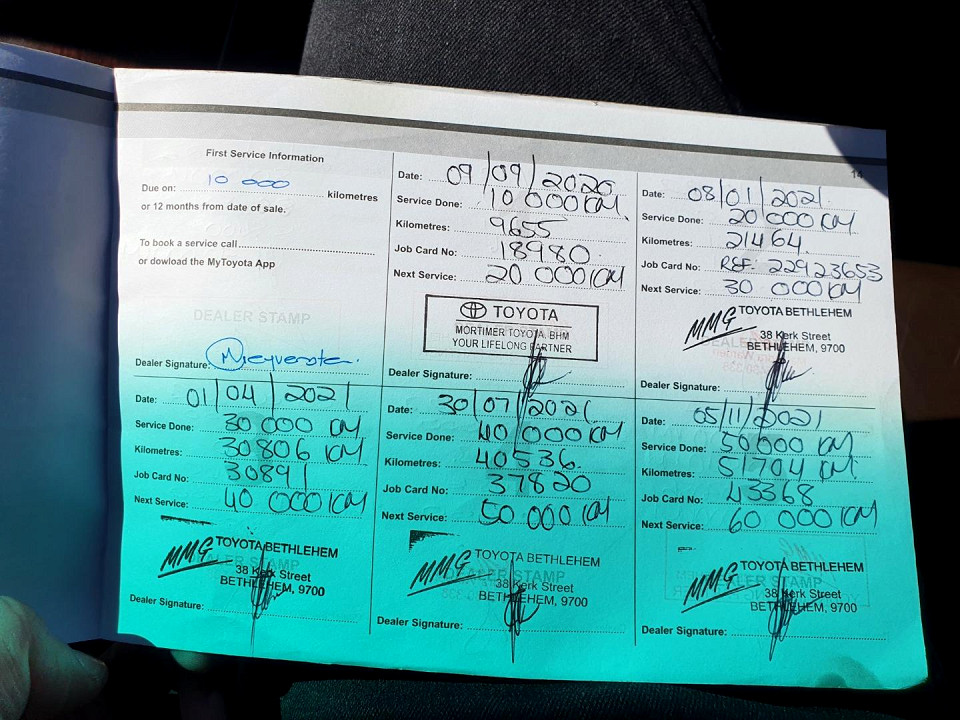 14
First Service Information
Due on: 10 000 kilometres
or 12 months from date of sale.
To book a service call
or dowload the MyToyota App
DEALER STAMP
Dealer Signature:
Date: 09/09/2020
Service Done: 10 000KM
Kilometres: 9655
Job Card No: 18980
Next Service: 20 000KM
TOYOTA
MORTIMER TOYOTA BHM
YOUR LIFELONG PARTNER
Dealer Signature:
Date: 08/01/2021
Service Done: 20 000 KM
Kilometres: 21464
Job Card No: REF: 22923653
Next Service: 30 000KM
MMG TOYOTA BETHLEHEM
38 Kerk Street
BETHLEHEM, 9700
Dealer Signature:
Date: 01/04/2021
Service Done: 30 000 KM
Kilometres: 30806 KM
Job Card No: 30891
Next Service: 40 000KM
MMG TOYOTA BETHLEHEM
DEALER STAMP
38 Kerk Street
BETHLEHEM, 9700
Dealer Signature:
Date: 30/07/2021
Service Done: 40 000KM
Kilometres: 40536
Job Card No: 37820
Next Service: 50 000 KM
MMG TOYOTA BETHLEHEM
DEALER STAMP
38 Kerk Street
BETHLEHEM, 9700
Dealer Signature:
Date: 05/11/2021
Service Done: 50000 KM
Kilometres: 51704 KM
Job Card No: 43368
Next Service: 60 000 KM
MMG TOYOTA BETHLEHEM
DEALER STAMP
38 Kerk Street
BETHLEHEM, 9700
Dealer Signature: